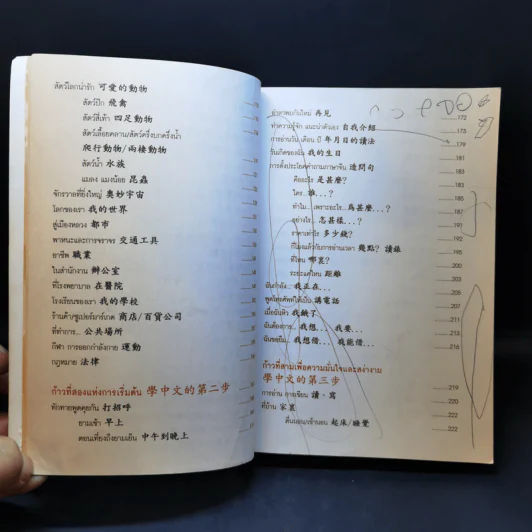 สัตว์โลกน่ารัก 可愛的動物
สัตว์ปีก 飛禽
สัตว์สี่เท้า 四足動物
สัตว์เลื้อยคลาน/สัตว์ครึ่งบกครึ่งน้ำ
爬行動物/兩棲動物
สัตว์น้ำ 水族
แมลง แมงน้อย 昆蟲
จักรวาลที่ยิ่งใหญ่ 奧妙宇宙
โลกของเรา 我的世界
สู่เมืองหลวง 都市
พาหนะและการจราจร 交通工具
อาชีพ 職業
ในสำนักงาน 辦公室
ที่โรงพยาบาล 在醫院
โรงเรียนของเรา 我的學校
ร้านค้า/ซูเปอร์มาร์เกต 商店/百貨公司
ที่ทำการ... 公共場所
กีฬา การออกกำลังกาย 運動
กฎหมาย 法律
ก้าวที่สองแห่งการเริ่มต้น 學中文的第二步
ทักทายพูดคุยกัน 打招呼
ยามเช้า 早上
ตอนเที่ยงถึงยามเย็น 中午到晚上
再見 172
ทำความรู้จัก แนะนำตัวเอง 自我介紹 173
การอ่านวัน เดือน ปี 年月目的讀法 179
วันเกิดของฉัน 我的生日 181
การตั้งประโยคคำถามภาษาจีน 造問句 183
คืออะไร 是甚麼? 183
ใคร... 誰...? 185
ทำไม... เพราะอะไร... 爲甚麼...? 186
อย่างไร... 怎甚樣...? 191
ราคาเท่าไร 多少錢? 192
กี่โมงแล้วกับการอ่านเวลา 幾點? 讀錄 195
ที่ไหน 哪裏? 200
ระยะแค่ไหน 距離 203
ฉันกำลัง... 我正在...
พูดโทรศัพท์ให้เป็น 講電話 207
เมื่อฉันหิว 我餓了 211
ฉันต้องการ... 我想... 我要... 213
ฉันขอยืม... 我想借... 我能借... 216
ก้าวที่สามเพื่อความมั่นใจและสง่างาม
學中文的第三步 219
การอ่าน การเขียน 讀、寫 220
ที่บ้าน 家裏 222
ตื่นนอน/เข้านอน 起床/睡覺 222